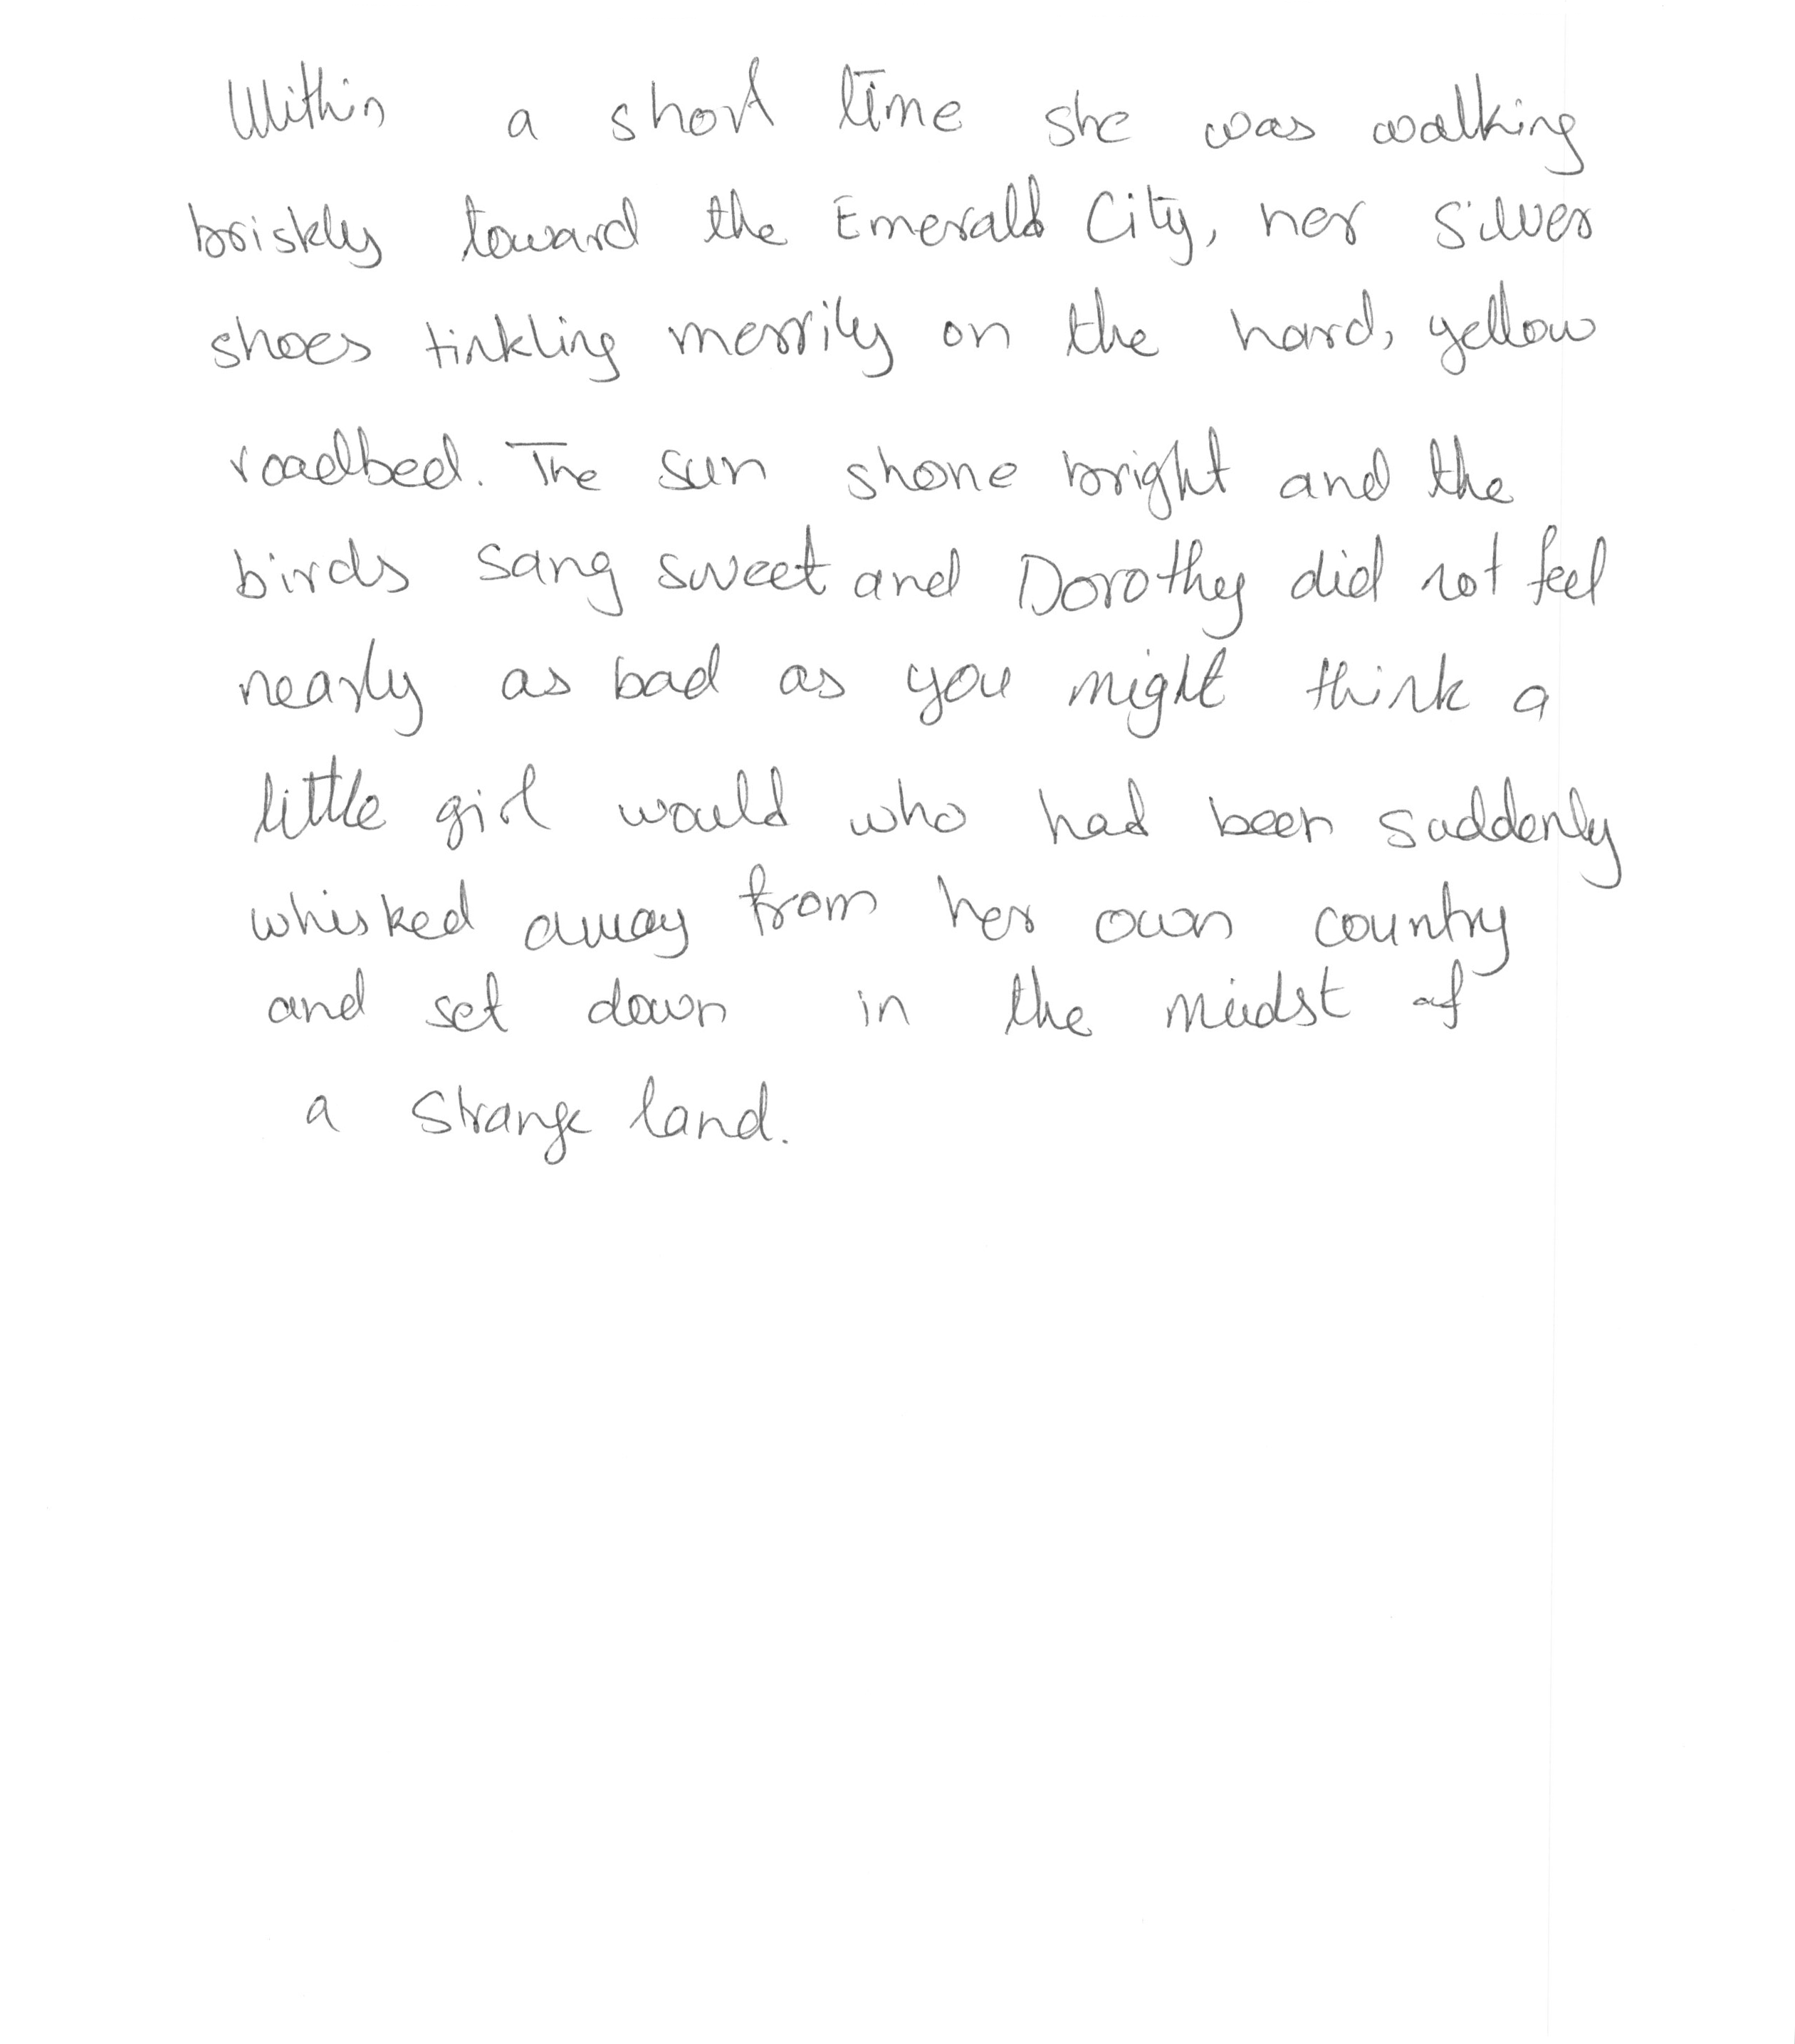 Within a short time she was walking
briskly toward the Emerald City, her Silver
shoes tinkling merrily on the hard, yellow
roadbed. The sun shone bright and the
birds sang sweet and Dorothy did not feel
nearly as bad as you might think a
little girl would who had been suddenly
whisked away from her own country
and set down in the midst of
a strange land.